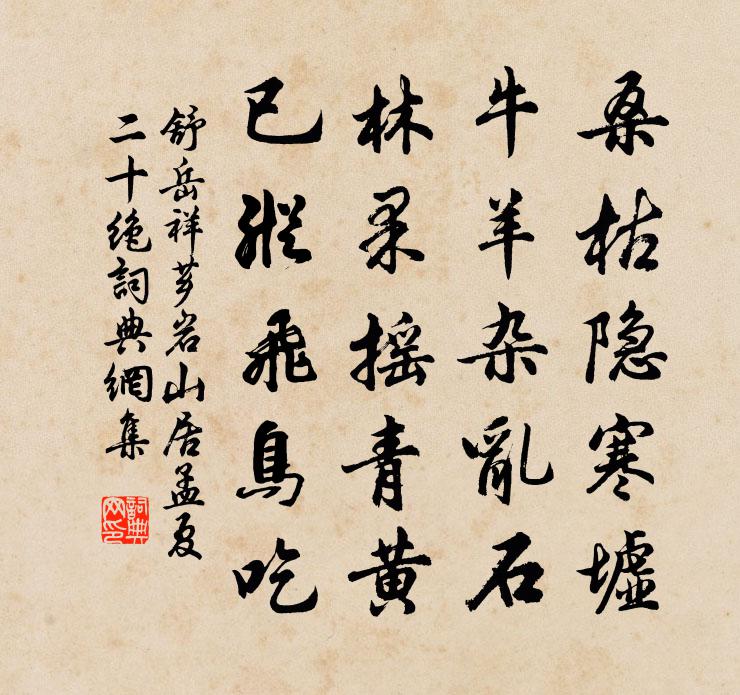 桑枯隐寒墟
牛羊杂亂石
林果摇青黄
已縱飛鳥吃
舒岳祥芗岩山居孟夏
二十绝詞典網集
詞典網印